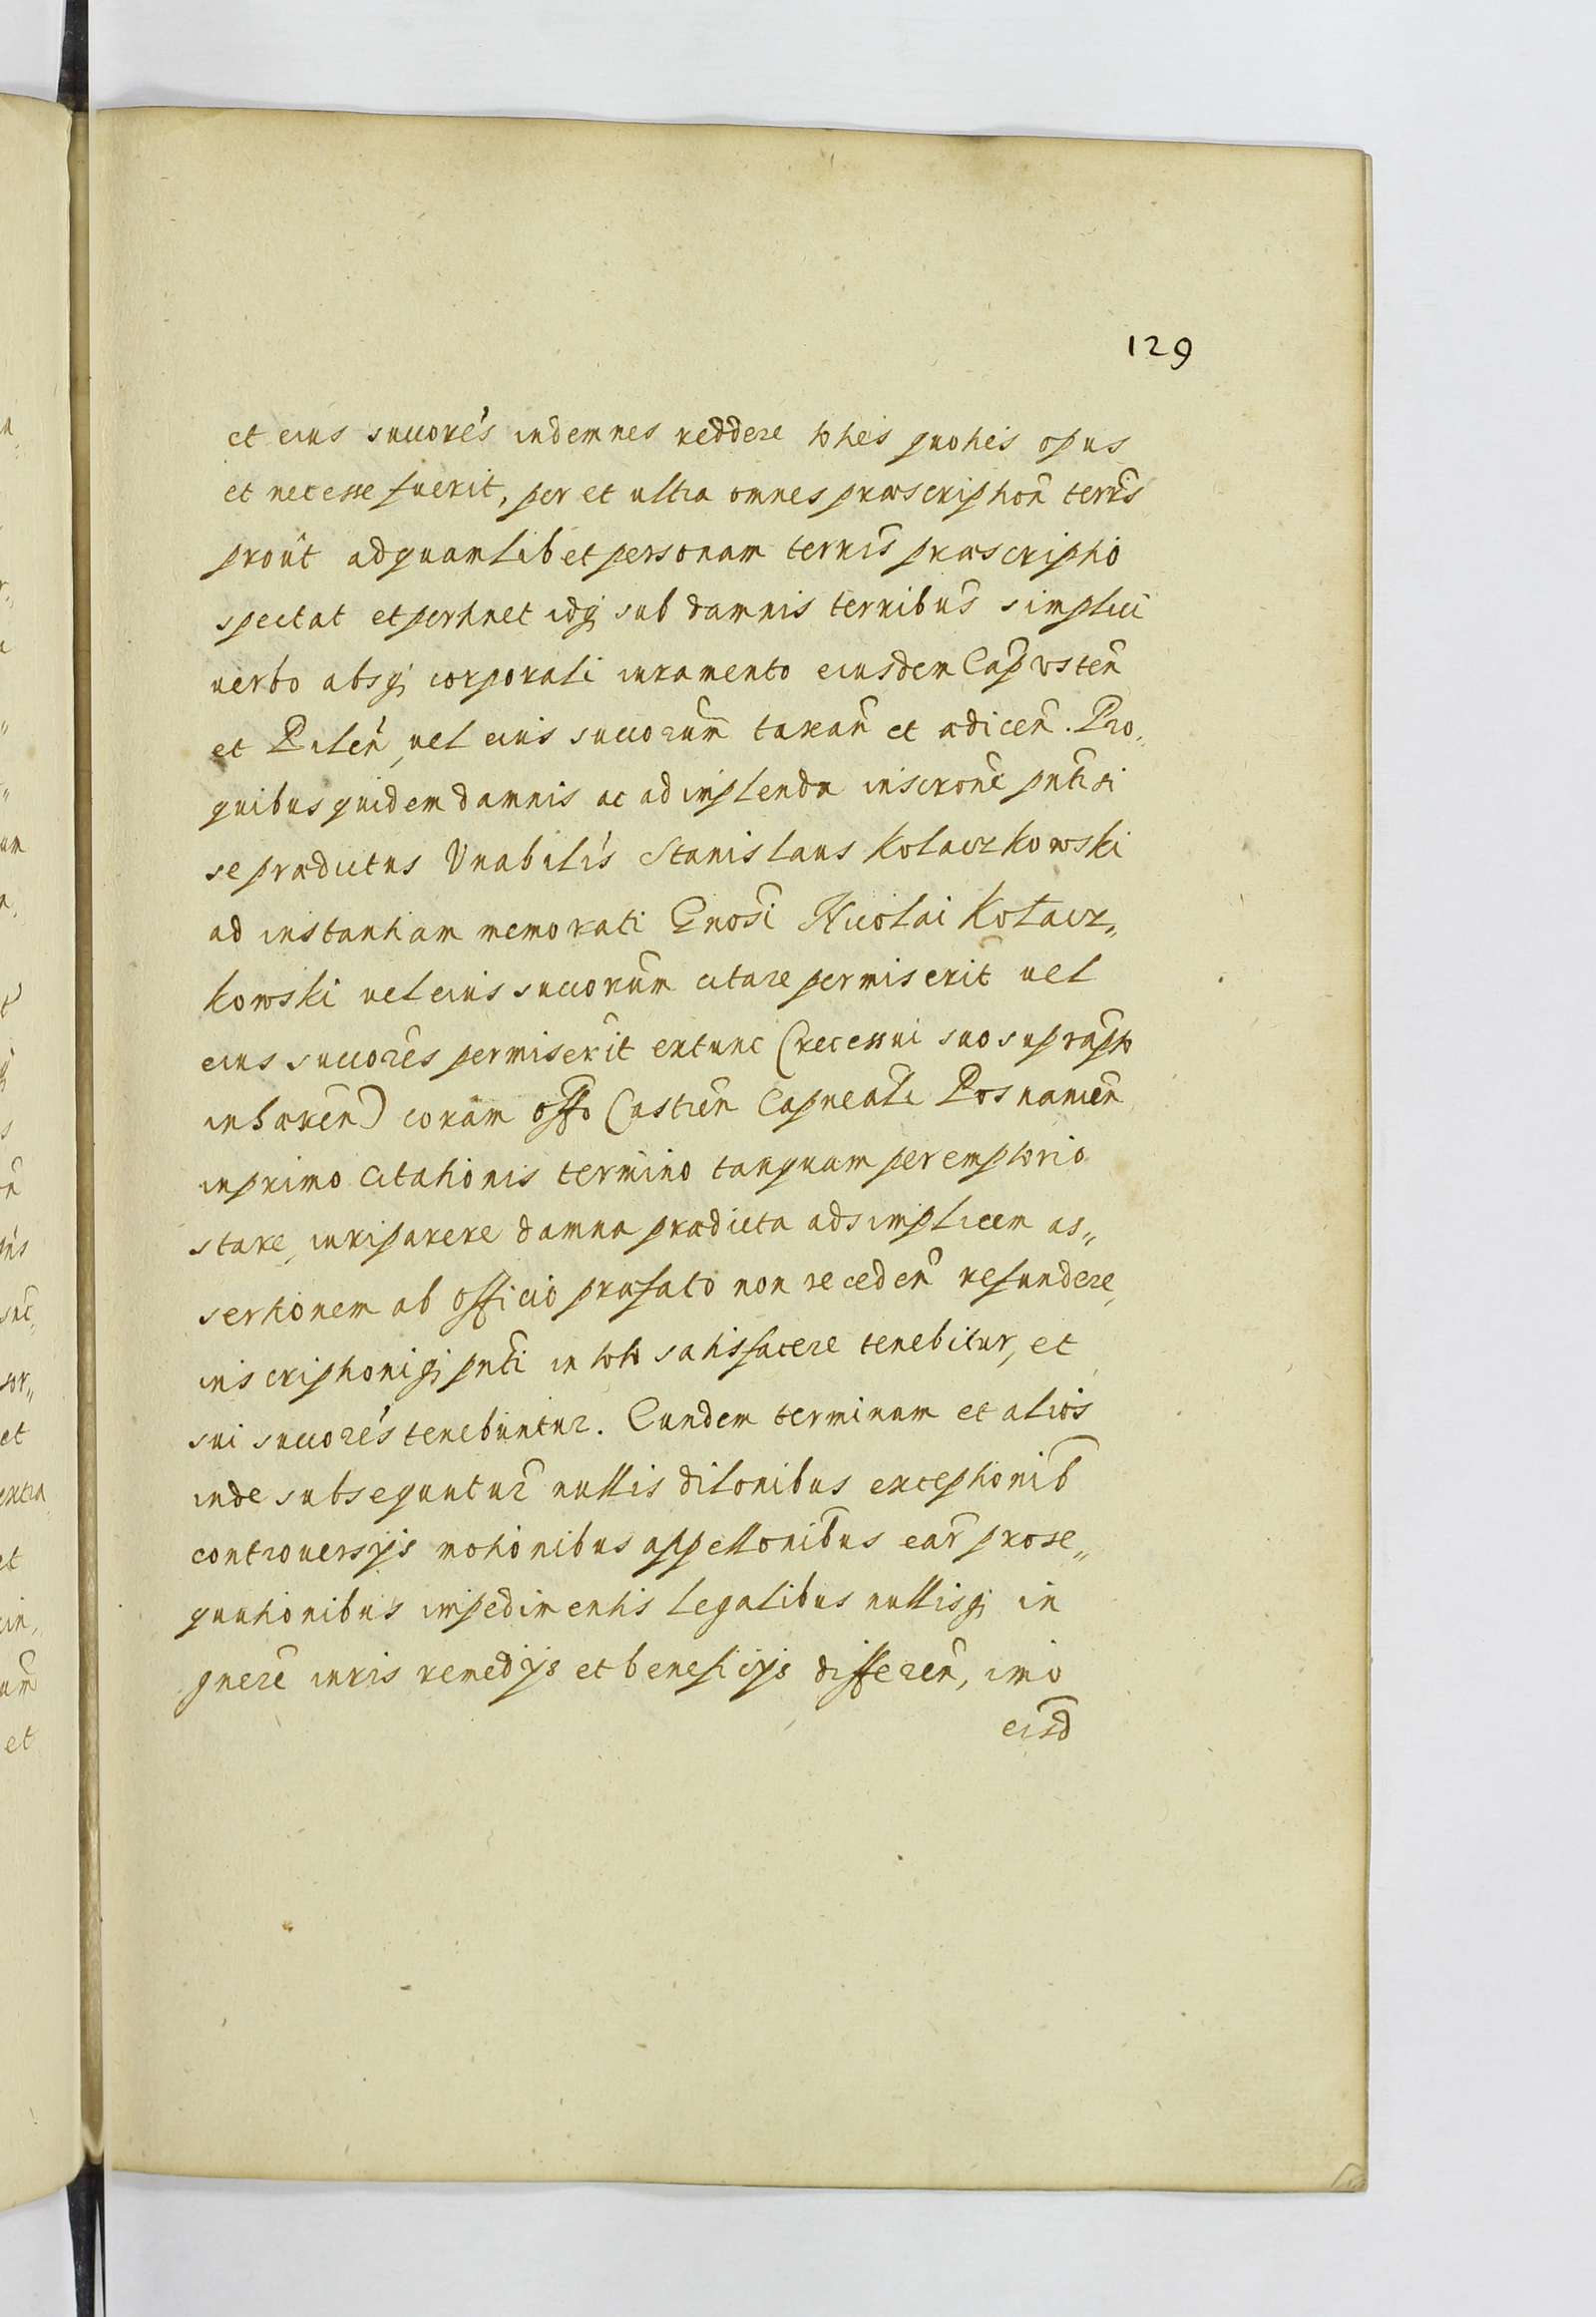 129
et eius succores indemnes reddere toties quoties opus
et necesse fuerit, per et ultra omnes præscription terrīs
prout ad quamlibet personam terrīs præscriptio
spectat et pertinet idq; sub damnis terribus simplici
uerbo absq; corporali iuramento eiusdem Cap
et Pilen, uel eius succorum taxan et adicen. Pro„
quibus quidem damnis ac ad implenda inscrone pnti si
se prædictus Vnabilis Stanislaus Kołaczkowski
ad instantiam memorati Gnosi Nicolai Kołacz„
kowski uel eius succorum citare permiserit uel
eius succores permiserit extunc (recessui suo suprapto
inhæren) coram offo Castren Capneali Posnanien
in primo citationis termino tanquam peremptorio
stare, iuri parere damna prædicta ad simplicem as„
sertionem ab officio præfato non receden refundere,
inscriptioniq; pnti in toto satisfacere tenebitur, et
sui succores tenebuntur. Eundem terminum et alios
inde subsequntur nullis dilonibus exceptionib
controuersijs motionibus appellonibus ear prose„
quutionibus impedimentis legalibus nullisq; in
gnere iuris remedijs et beneficijs differen, imo
eisd